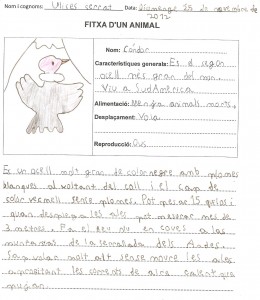 Nom i cognoms: Ulises serrat Data: diumenge 25 de novembre de 2012
FITXA D'UN ANIMAL
Nom: Cóndor
Característiques generals: Es el segon
ocell mes gran del mon.
Viu a SudAmèrica
Alimentació: Menja animals morts.
Desplaçament: Vola
Reproducció: Ous
Es un ocell molt gran de color negre amb plomes
blanques al voltant del coll i el cap de
color vermell sense plomes. Pot pesar 15 quilos i
quan desplega les ales pot mesurar mes de
3 metros. Fa el seu niu en coves a las
muntanyas de la serralada dels Andes.
Son volar molt alt sense moure les ales
aprofitant les corrents de aire calent que
pugen.